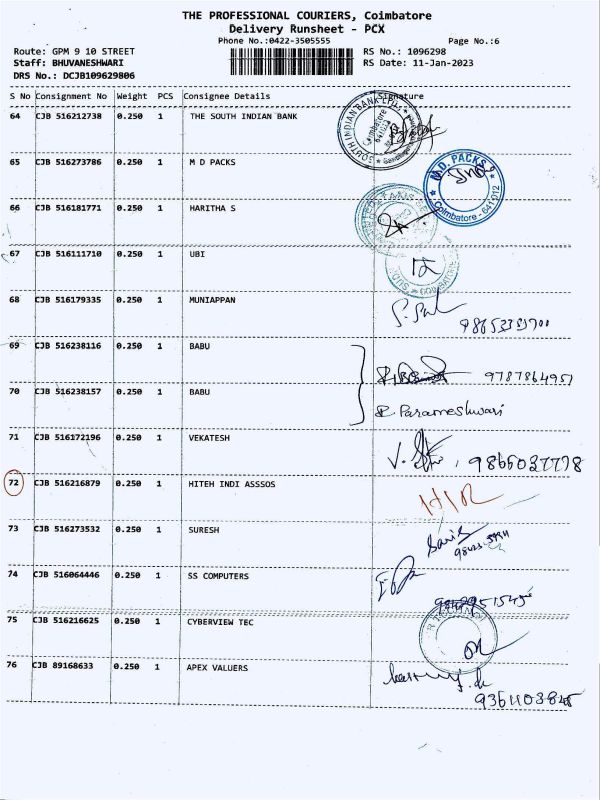 THE PROFESSIONAL COURIERS, Coimbatore
Delivery Runsheet - PCX
Phone No.:0422-3505555
Page No.:6
Route: GPM 9 10 STREET
RS No.: 1096298
Staff: BHUVANESHWARI
RS Date: 11-Jan-2023
DRS No.: DCJB109629806
S No Consignment No Weight PCS Consignee Details Signature
64 CJB 516212738 0.250 1 THE SOUTH INDIAN BANK
SOUTH INDIAN BANK LTD.
Coimbatore
65 CJB 516273786 0.250 1 M D PACKS
M.D. PACKS
Coimbatore - 641 012
66 CJB 516181771 0.250 1 HARITHA S
67 CJB 516111710 0.250 1 UBI
68 CJB 516179335 0.250 1 MUNIAPPAN
69 CJB 516238116 0.250 1 BABU
9787864957
70 CJB 516238157 0.250 1 BABU
R Parameshwari
71 CJB 516172196 0.250 1 VEKATESH
72 CJB 516216879 0.250 1 HITEH INDI ASSSOS
73 CJB 516273532 0.250 1 SURESH
74 CJB 516064446 0.250 1 SS COMPUTERS
75 CJB 516216625 0.250 1 CYBERVIEW TEC
76 CJB 89168633 0.250 1 APEX VALUERS